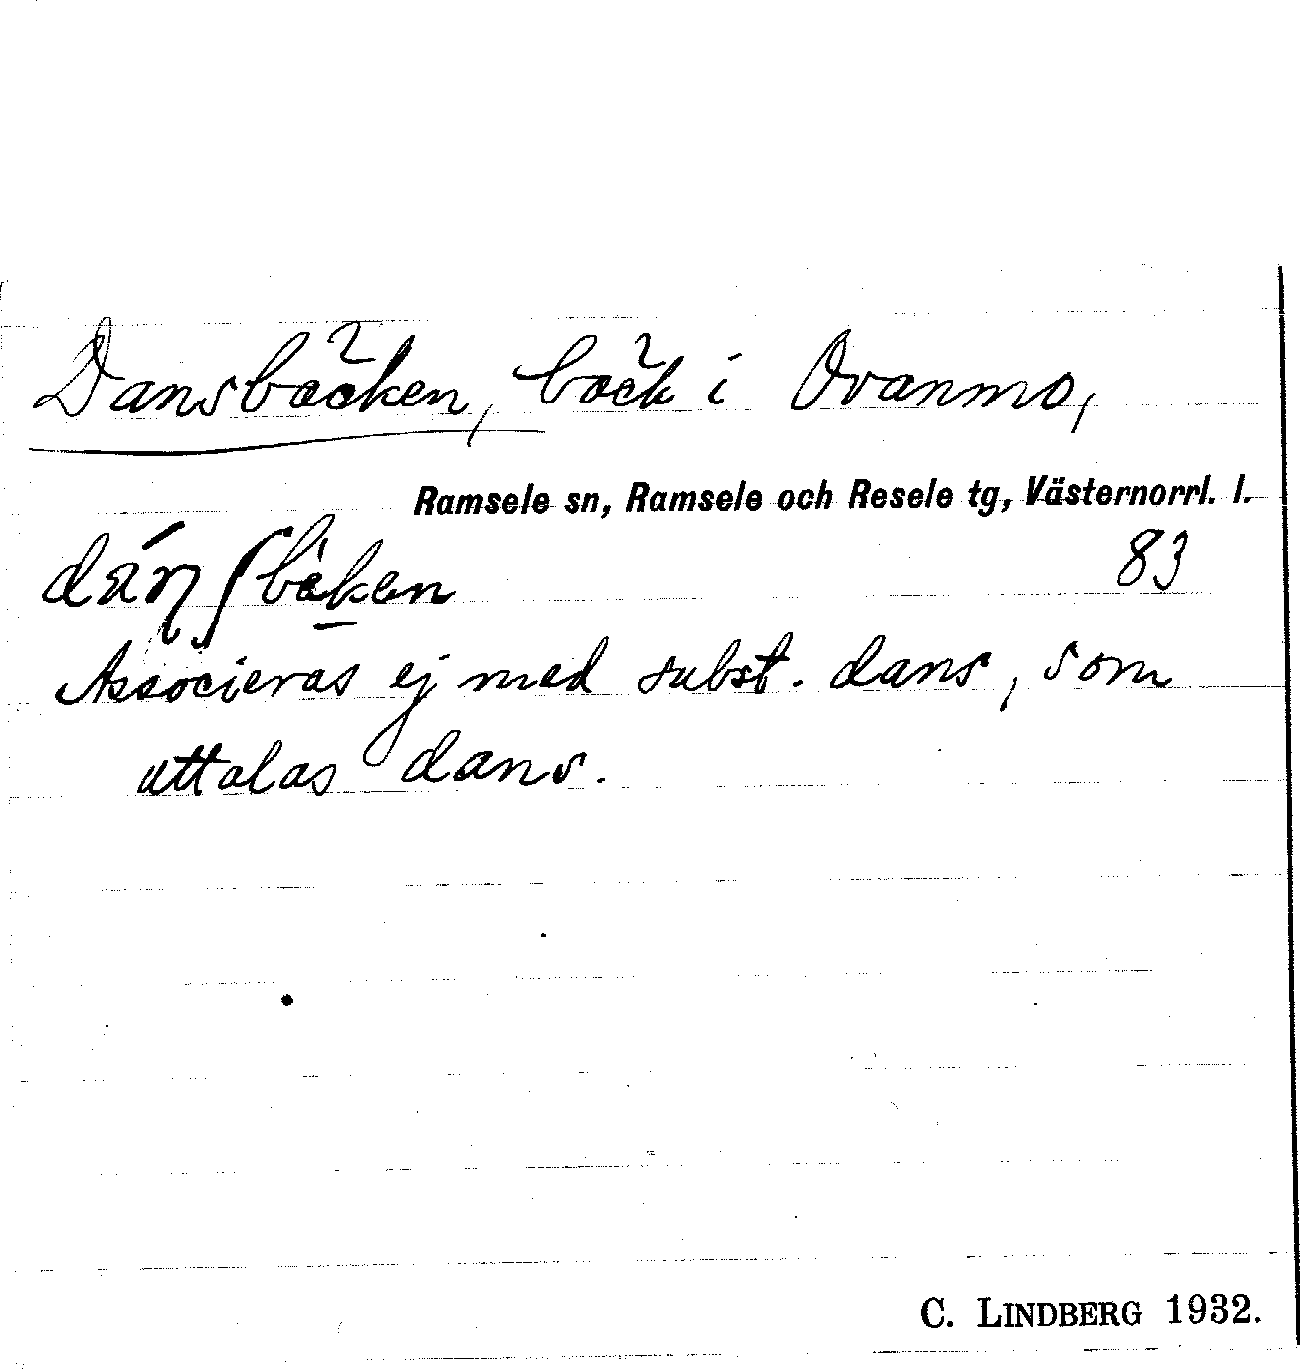 Dansbäcken, bäck i Ovanmo,
Ramsele sn, Ramsele och Resele tg, Västernorrl. l.
83
Associeras ej med subst. dans, som
uttalas dans.
C. LINDBERG 1932.